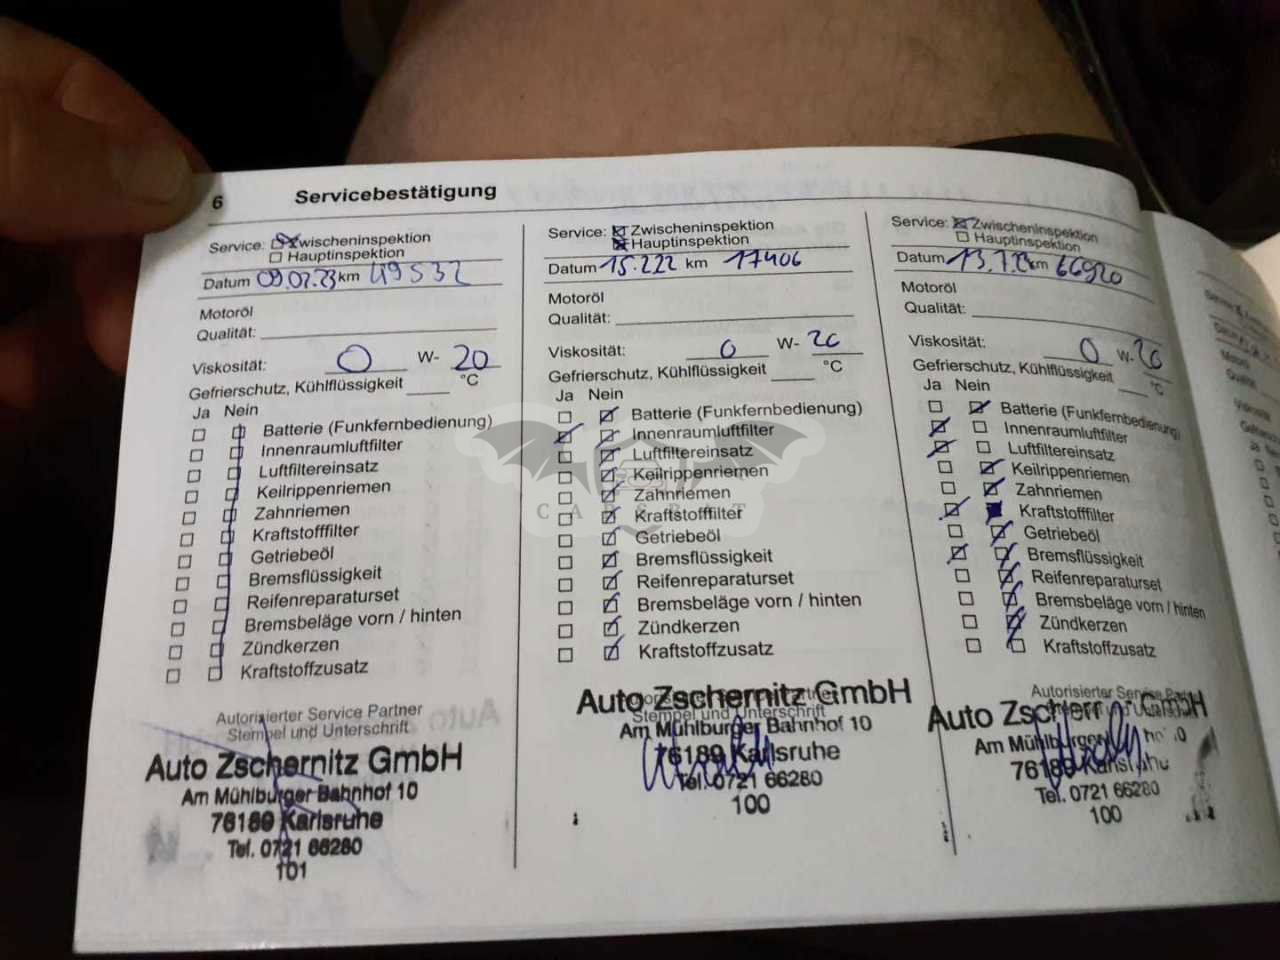 6 Servicebestätigung
Service: Zwischeninspektion
Hauptinspektion
Datum 09.02.23 km 49532
Motoröl
Qualität:
Viskosität: 0 W- 20
Gefrierschutz, Kühlflüssigkeit °C
Ja Nein
Batterie (Funkfernbedienung)
Innenraumluftfilter
Luftfiltereinsatz
Keilrippenriemen
Zahnriemen
Kraftstofffilter
Getriebeöl
Bremsflüssigkeit
Reifenreparaturset
Bremsbeläge vorn / hinten
Zündkerzen
Kraftstoffzusatz
Autorisierter Service Partner
Stempel und Unterschrift
Auto Zschernitz GmbH
Am Mühlburger Bahnhof 10
76189 Karlsruhe
Tel. 0721 66280
101
Service: Zwischeninspektion
Hauptinspektion
Datum 15.222 km 17406
Motoröl
Qualität:
Viskosität: 0 W- 20
Gefrierschutz, Kühlflüssigkeit °C
Ja Nein
Batterie (Funkfernbedienung)
Innenraumluftfilter
Luftfiltereinsatz
Keilrippenriemen
Zahnriemen
Kraftstofffilter
Getriebeöl
Bremsflüssigkeit
Reifenreparaturset
Bremsbeläge vorn / hinten
Zündkerzen
Kraftstoffzusatz
Stempel und Unterschrift
Auto Zschernitz GmbH
Am Mühlburger Bahnhof 10
76189 Karlsruhe
Tel. 0721 66280
100
Service: Zwischeninspektion
Hauptinspektion
Datum 13.7.2 km 66920
Motoröl
Qualität:
Viskosität: 0 W- 20
Gefrierschutz, Kühlflüssigkeit °C
Ja Nein
Batterie (Funkfernbedienung)
Innenraumluftfilter
Luftfiltereinsatz
Keilrippenriemen
Zahnriemen
Kraftstofffilter
Getriebeöl
Bremsflüssigkeit
Reifenreparaturset
Bremsbeläge vorn / hinten
Zündkerzen
Kraftstoffzusatz
Autorisierter Service
Auto Zschernitz GmbH
Am Mühlburger
76189 Karlsruhe
Tel. 0721 66280
100